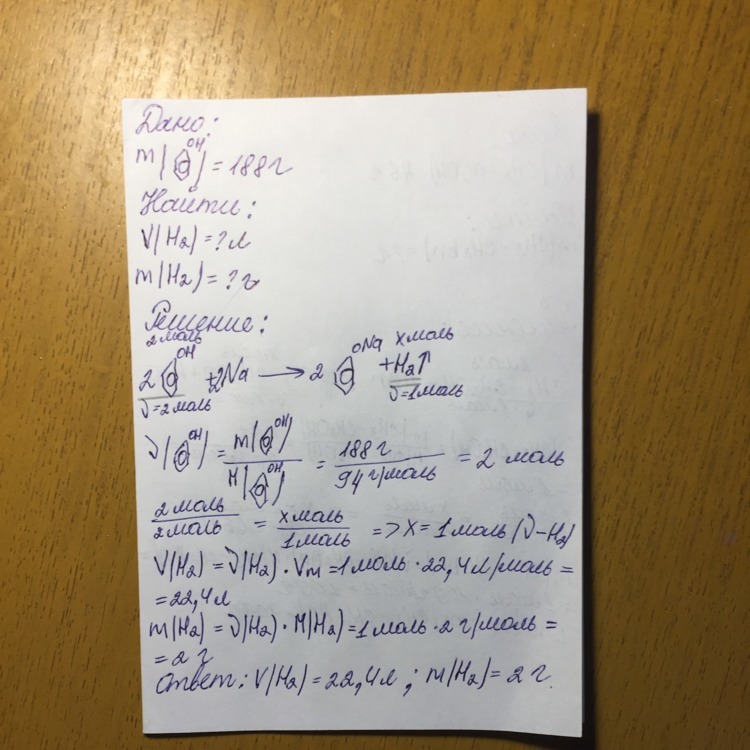 Дано:
m(OH) = 188 г
Найти:
V(H2) = ? л
m(H2) = ? г
Решение:
2 моль x моль
2 OH + 2Na → 2 ONa + H2↑
ν = 2 моль ν = 1 моль
ν(OH) = m(OH) / M(OH) = 188 г / 94 г/моль = 2 моль
2 моль / 2 моль = x моль / 1 моль => x = 1 моль (ν - H2)
V(H2) = ν(H2) · Vm = 1 моль · 22,4 л/моль =
= 22,4 л
m(H2) = ν(H2) · M(H2) = 1 моль · 2 г/моль =
= 2 г
Ответ: V(H2) = 22,4 л ; m(H2) = 2 г.